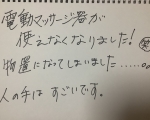 電動マッサージ器が
使えなくなりました!
物置になってしまいました……。
人の手はすごいです。